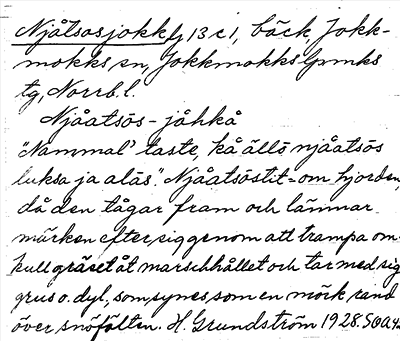 Njåtsosjokk, 13 c 1, bäck, Jokk-
mokks sn, Jokkmokks lpmks
tg, Norrb. l.
Njåatsōs - jåhkå
"Nammal' taste, kå ällō njåatsōs
luksa ja alås." Njåatsōstit = om hjorden,
då den tågar fram och lämnar
märken efter sig genom att trampa om-
kull gräset åt marschhållet och tar med sig
grus o. dyl., som synes som en mörk rand
över snöfälten. H. Grundström 1928.